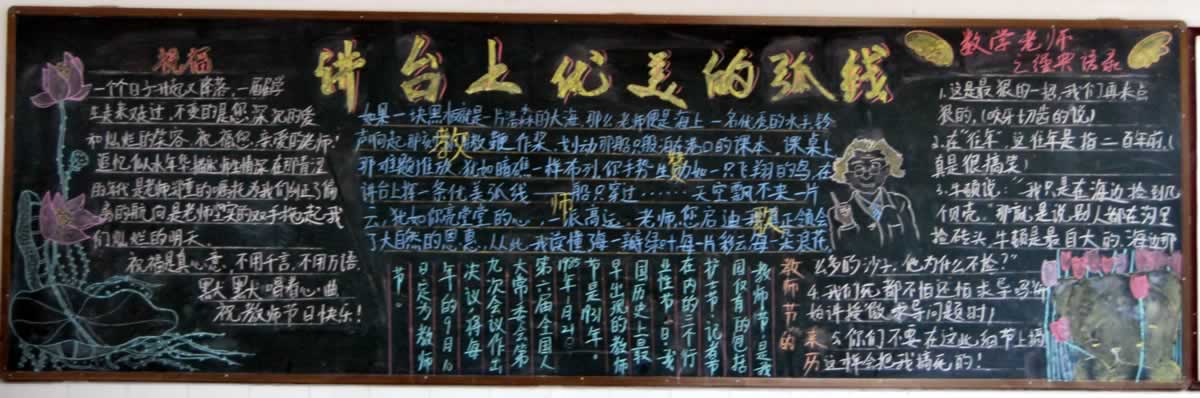 讲台上优美的弧线
祝福
一个个日子升起又降落,一届届学
生走来又走过,不变的是您深沉的爱
和灿烂的笑容,祝福您,亲爱的老师!
的年代是老师谆谆的嘱托为我们纠正了偏
离的航向是老师坚实的双手托起我
们灿烂的明天。
祝福是真心意,不用千言,不用万语,
默默唱着心曲
祝教师节日快乐!
如果一块黑板就是一片浩淼的大海,那么,老师便是海上一名优秀的水手,铃
声响起那刻你用教鞭作桨,划动那船只般泊在港口的课本,课桌上
那难题堆放,犹如暗礁一样布列,你手势生动如一只飞翔的鸟,在
讲台上挥一条优美弧线 船只穿过……天空飘不来一片
云,犹如你亮堂堂的心,一派高远。老师,您启迪我真正领会
了大自然的恩惠,从此,我读懂每一瓣绿叶每一片彩云每一朵浪花
教
师
赞
歌
教师节的来历
教师节,是我
国仅有的包括
护士节、记者节
在内的三个行
业性节日。我
国历史上最
早出现的教师
节是1931年。
1985年1月21日
第六届全国人
大常委会第
九次会议作出
决议,将每
年的9月10
日定为教师
节。
数学老师
之经典语录
1.这是最狠的一招,我们再来点
狠的,(咬牙切齿的说)
2.在“往年”,这往年是指二百年前,(
真是很搞笑)
3.牛顿说:“我只是在海边捡到几
个贝壳。那就是说,别人都在沟里
捡砖头,牛顿是最自大的,海边那
么多的沙子,他为什么不捡?”
4.我们死都不怕还怕求导吗(开
始讲授做求导问题时)
5.你们不要在这些细节上搞
这样会把我搞死的!